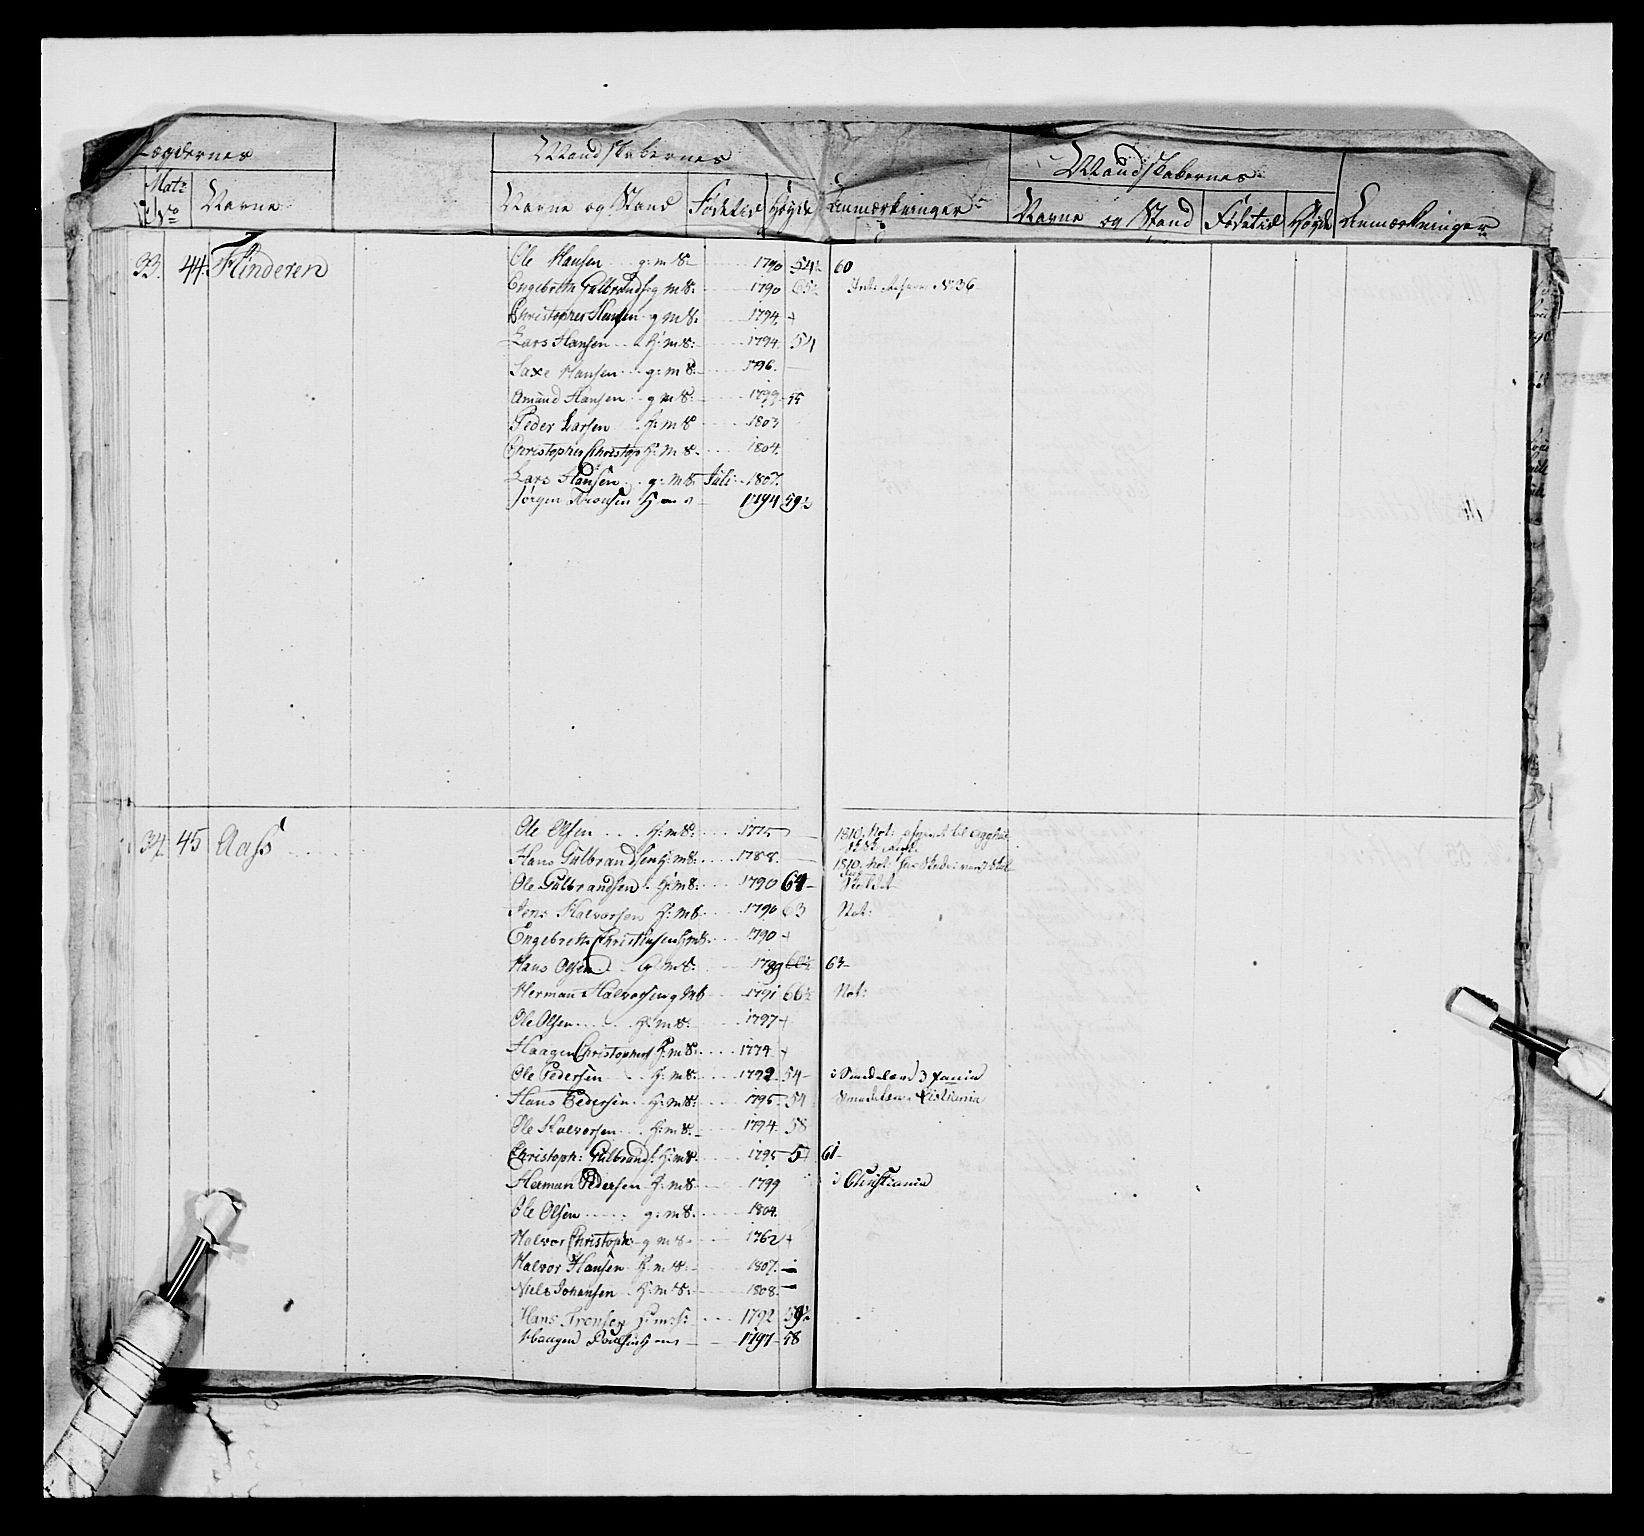 Lægdernes Mandskabernes Mandskabernes
Matr No Navne Navne og Stand Fødetid Høyde Anmærkninger Navne og Stand Fødetid Høyde Anmærkninger
33. 44. Hinderen Ole Hansen g: m 8: 1790 54½ 60
Engebreth Gulbrands: g m 8: 1790 No 36
Christopher Hansen g m 8: 1794 +
Lars Hansen H: m 8: 1794 54
Saxe Hansen g: m 8: 1796.
Amund Hansen g m 8: 1799
Peder Larsen H: m 8 1803
Christopher Christoph H: m 8: 1804.
Lars Hansen g: m 8 Juli 1807.
Jørgen H 1794 59½
34. 45 Aass Ole Olsen H: m 8: 1775 1810. Not:
Hans Gulbrandsen H: m 8: 1788. 1810. Not:
Ole Gulbrandsen H: m 8: 1790 64
Jens Halvorsen H: m 8: 1790 63 Not:
Engebreth Christensen H: m 8: 1790 +
Hans Olsen H: m 8: 1789 60½ 63
Herman Halvorsen g m 8 1791 66½ Not:
Ole Olsen H: m 8: 1797 +
Haagen Christophers H: m 8: 1774 +
Ole Pedersen H: m 8: 1792 54 i
Hans Pedersen H: m 8: 1795 54
Ole Halvorsen H: m 8: 1794 58
Christoph: Gulbrand: H: m 8: 1795 54 61
Herman Pedersen H: m 8 1799 i Christiania
Ole Olsen g: m 8: 1804.
Halvor Christoph: g m 8 1762 +
Halvor Hansen H: m 8: 1807.
Niels Johansen H: m 8: 1808
Hans 1792 59½
Haagen 1797 58